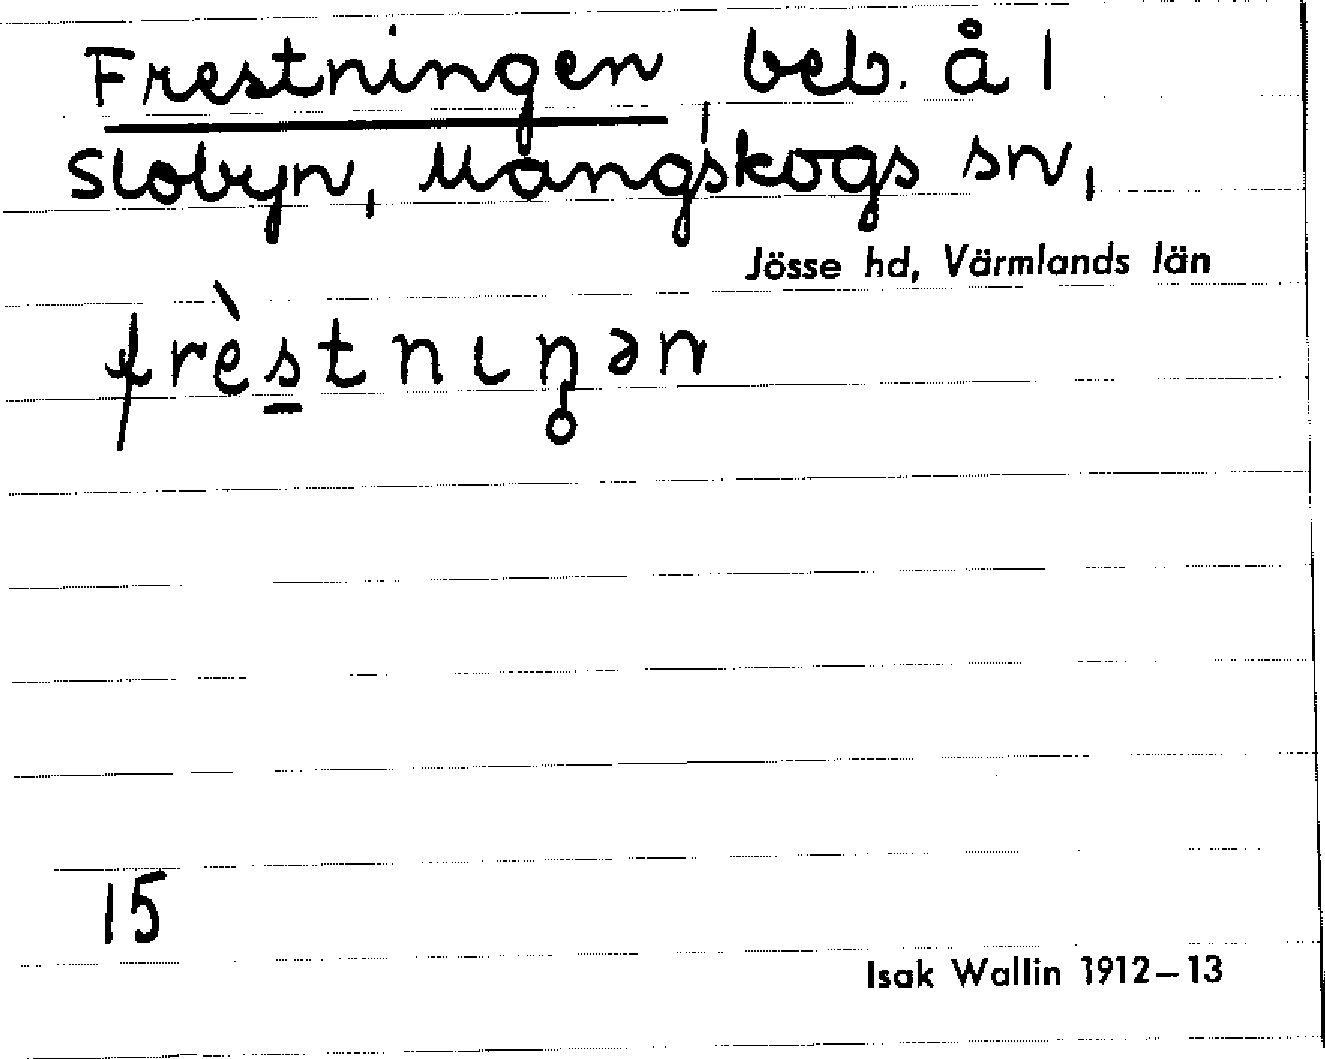 Frestningen beb. å 1
Slobyn, Mangskogs sn,
Jösse hd, Värmlands län
frèstnıŋən
15
Isak Wallin 1912–13